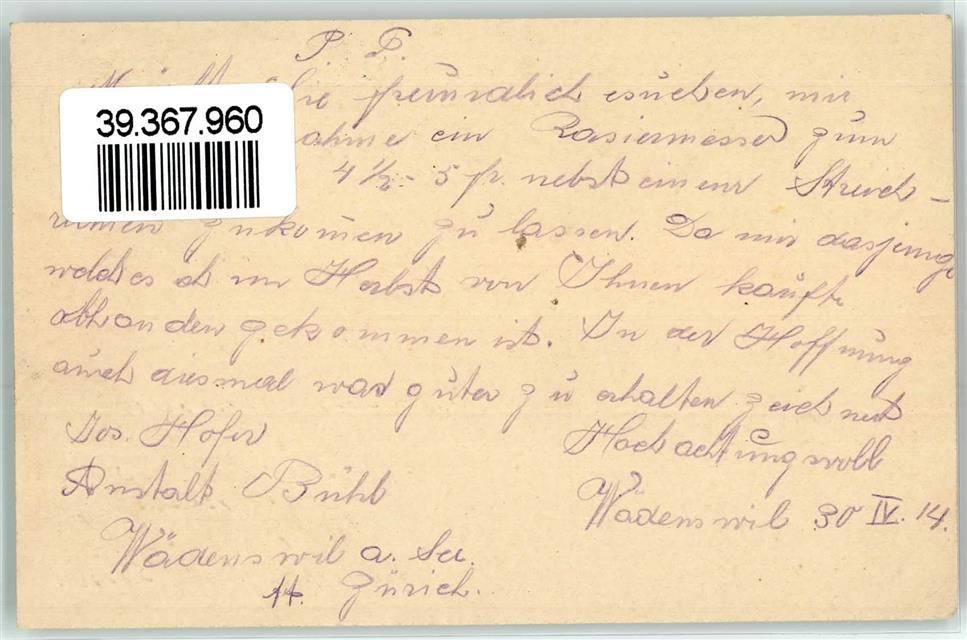 P. P.
Sie freundlich esuchen, mir
39.367.960
ahme ein Rasiermesser zum
4 1/2 - 5 fr. nebst einem Streich-
riemen zukomen zu lassen. Da mir dasjenige
welches ich im Herbst von Ihnen kaufte
abhanden gekommen ist. In der Hoffnung
auch diesmal was gutes zu erhalten zeichnet
Jos. Hofer
Hochachtungsvoll
Anstalt Bühl
Wädenswil 30 IV. 14.
Wädenswil a. See
Kt. Zürich.